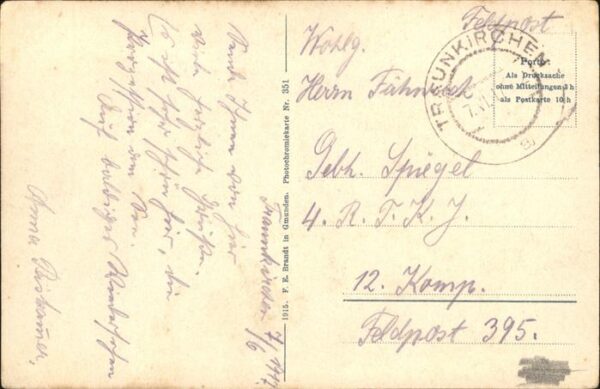 Feldpost
Wohlg.
Herrn Fähnrich
Gebh. Spiegel
4. R. T. K. J.
12. Komp.
Feldpost 395.
TRAUNKIRCHEN
Porto:
Als Drucksache
ohne Mitteilungen 3 h
als Postkarte 10 h
1915. F. E. Brandt in Gmunden. Photochromiekarte Nr. 351
Traunkirchen 7/6
Ihnen von hier
herzliche Grüße.
Es ist sehr schön hier, die
Prozession am See.
Auf baldiges Wiedersehen
Anna